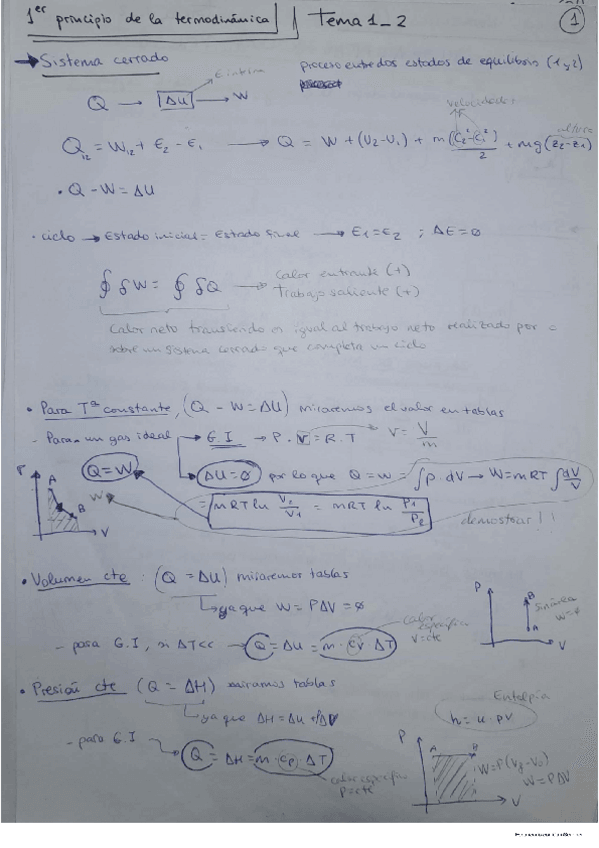 1er principio de la termodinámica Tema 1_2 1
→ Sistema cerrado
E interna
proceso entre dos estados de equilibrio (1 y 2)
Q → ΔU → W
velocidades
altura
Q12 = W12 + E2 - E1 → Q = W + (U2-U1) + m(C2²-C1²)/2 + mg(z2-z1)
• Q - W = ΔU
• ciclo → Estado inicial = Estado final → E1=E2 ; ΔE=0
∮δW = ∮δQ → Calor entrante (+)
Trabajo saliente (+)
Calor neto transferido es igual al trabajo neto realizado por o
sobre un sistema cerrado que completa un ciclo
• Para Tª constante, (Q - W = ΔU) miraremos el valor en tablas
- Para un gas ideal → G.I → P.v = R.T v = V/m
Q=W ΔU=0 por lo que Q = W = ∫p.dV → W = mRT ∫dV/V
= mRT ln V2/V1 = mRT ln P1/P2
demostrar!!
P A B W V
• Volumen cte : (Q = ΔU) miraremos tablas
ya que W = PΔV = 0
- para G.I, si ΔT<< → Q = ΔU = m·cv·ΔT
calor específico V=cte
P B A V
W=0
• Presión cte (Q = ΔH) miramos tablas
ya que ΔH = ΔU + PΔV
- para G.I → Q = ΔH = m·cp·ΔT
calor específico P=cte
Entalpía
h = u + pv
P A B V
W=P(Vf-V0)
W = PΔV